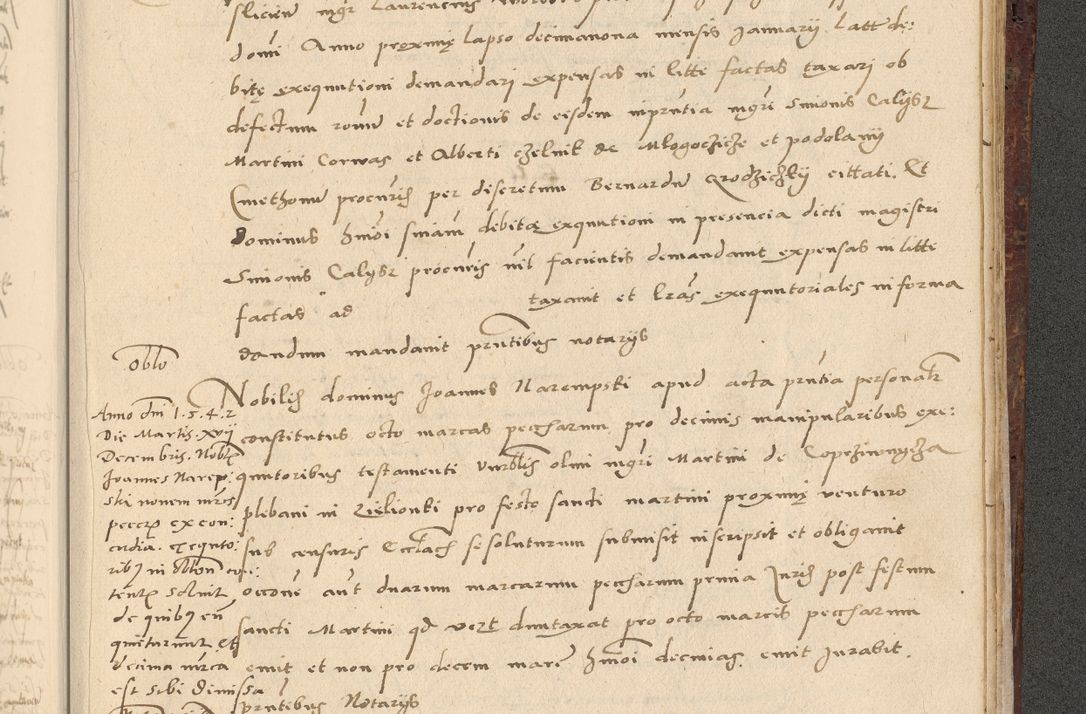 domi Anno proximę lapso decimanona mensis Januarij latt de:
bitę exequutioni demandari expensas in litte factas taxari ob
defectum rome et doctionis de eisdem in pruntia mgri Simonis Calijsz
Martini Corwas et Alberti czelnik de Mlogoczicze et podolanij
Cmethonum procuris per discretum Bernardum citati. Et
Dominus hmoi sniam debitę exquutioni in presencia dicti magistri
Simonis Calijsz procuris nil facientis demandauit expensas in litte
factas ad taxauit et lras exequutoriales in forma
dandum mandauit prntibus notarijs
Oblo
Nobilis dominus Joannes Narempski apud acta prntia personalr
constitutus octo marcas peccharum pro decimis manipularibus exe:
quutoribus testamenti vnrblis olim mgri Martini de
plebani in Zielionki pro festo sancti martini proximę venturo
sub censuris Ecclach se soluturum submisit inscripsit et obligauit
occone aut duarum marcarum peccharum Juris post festum
sancti Martini qd duntaxat pro octo marcis peccharum
emit et non pro decem marc hmoi decimas emit Jurabit.
prntibus Notarijs
Anno dni 1.5.4.2
Die Martis XVij
Decembris. Noblis
Joannes Narep:
ski nonem mrcis
peccr ex con:
cordia. exequto:
ribq in oblon con:
tentr soluit
de quibq eū
quietarunt Et
decima mrca
est sibi dimissa